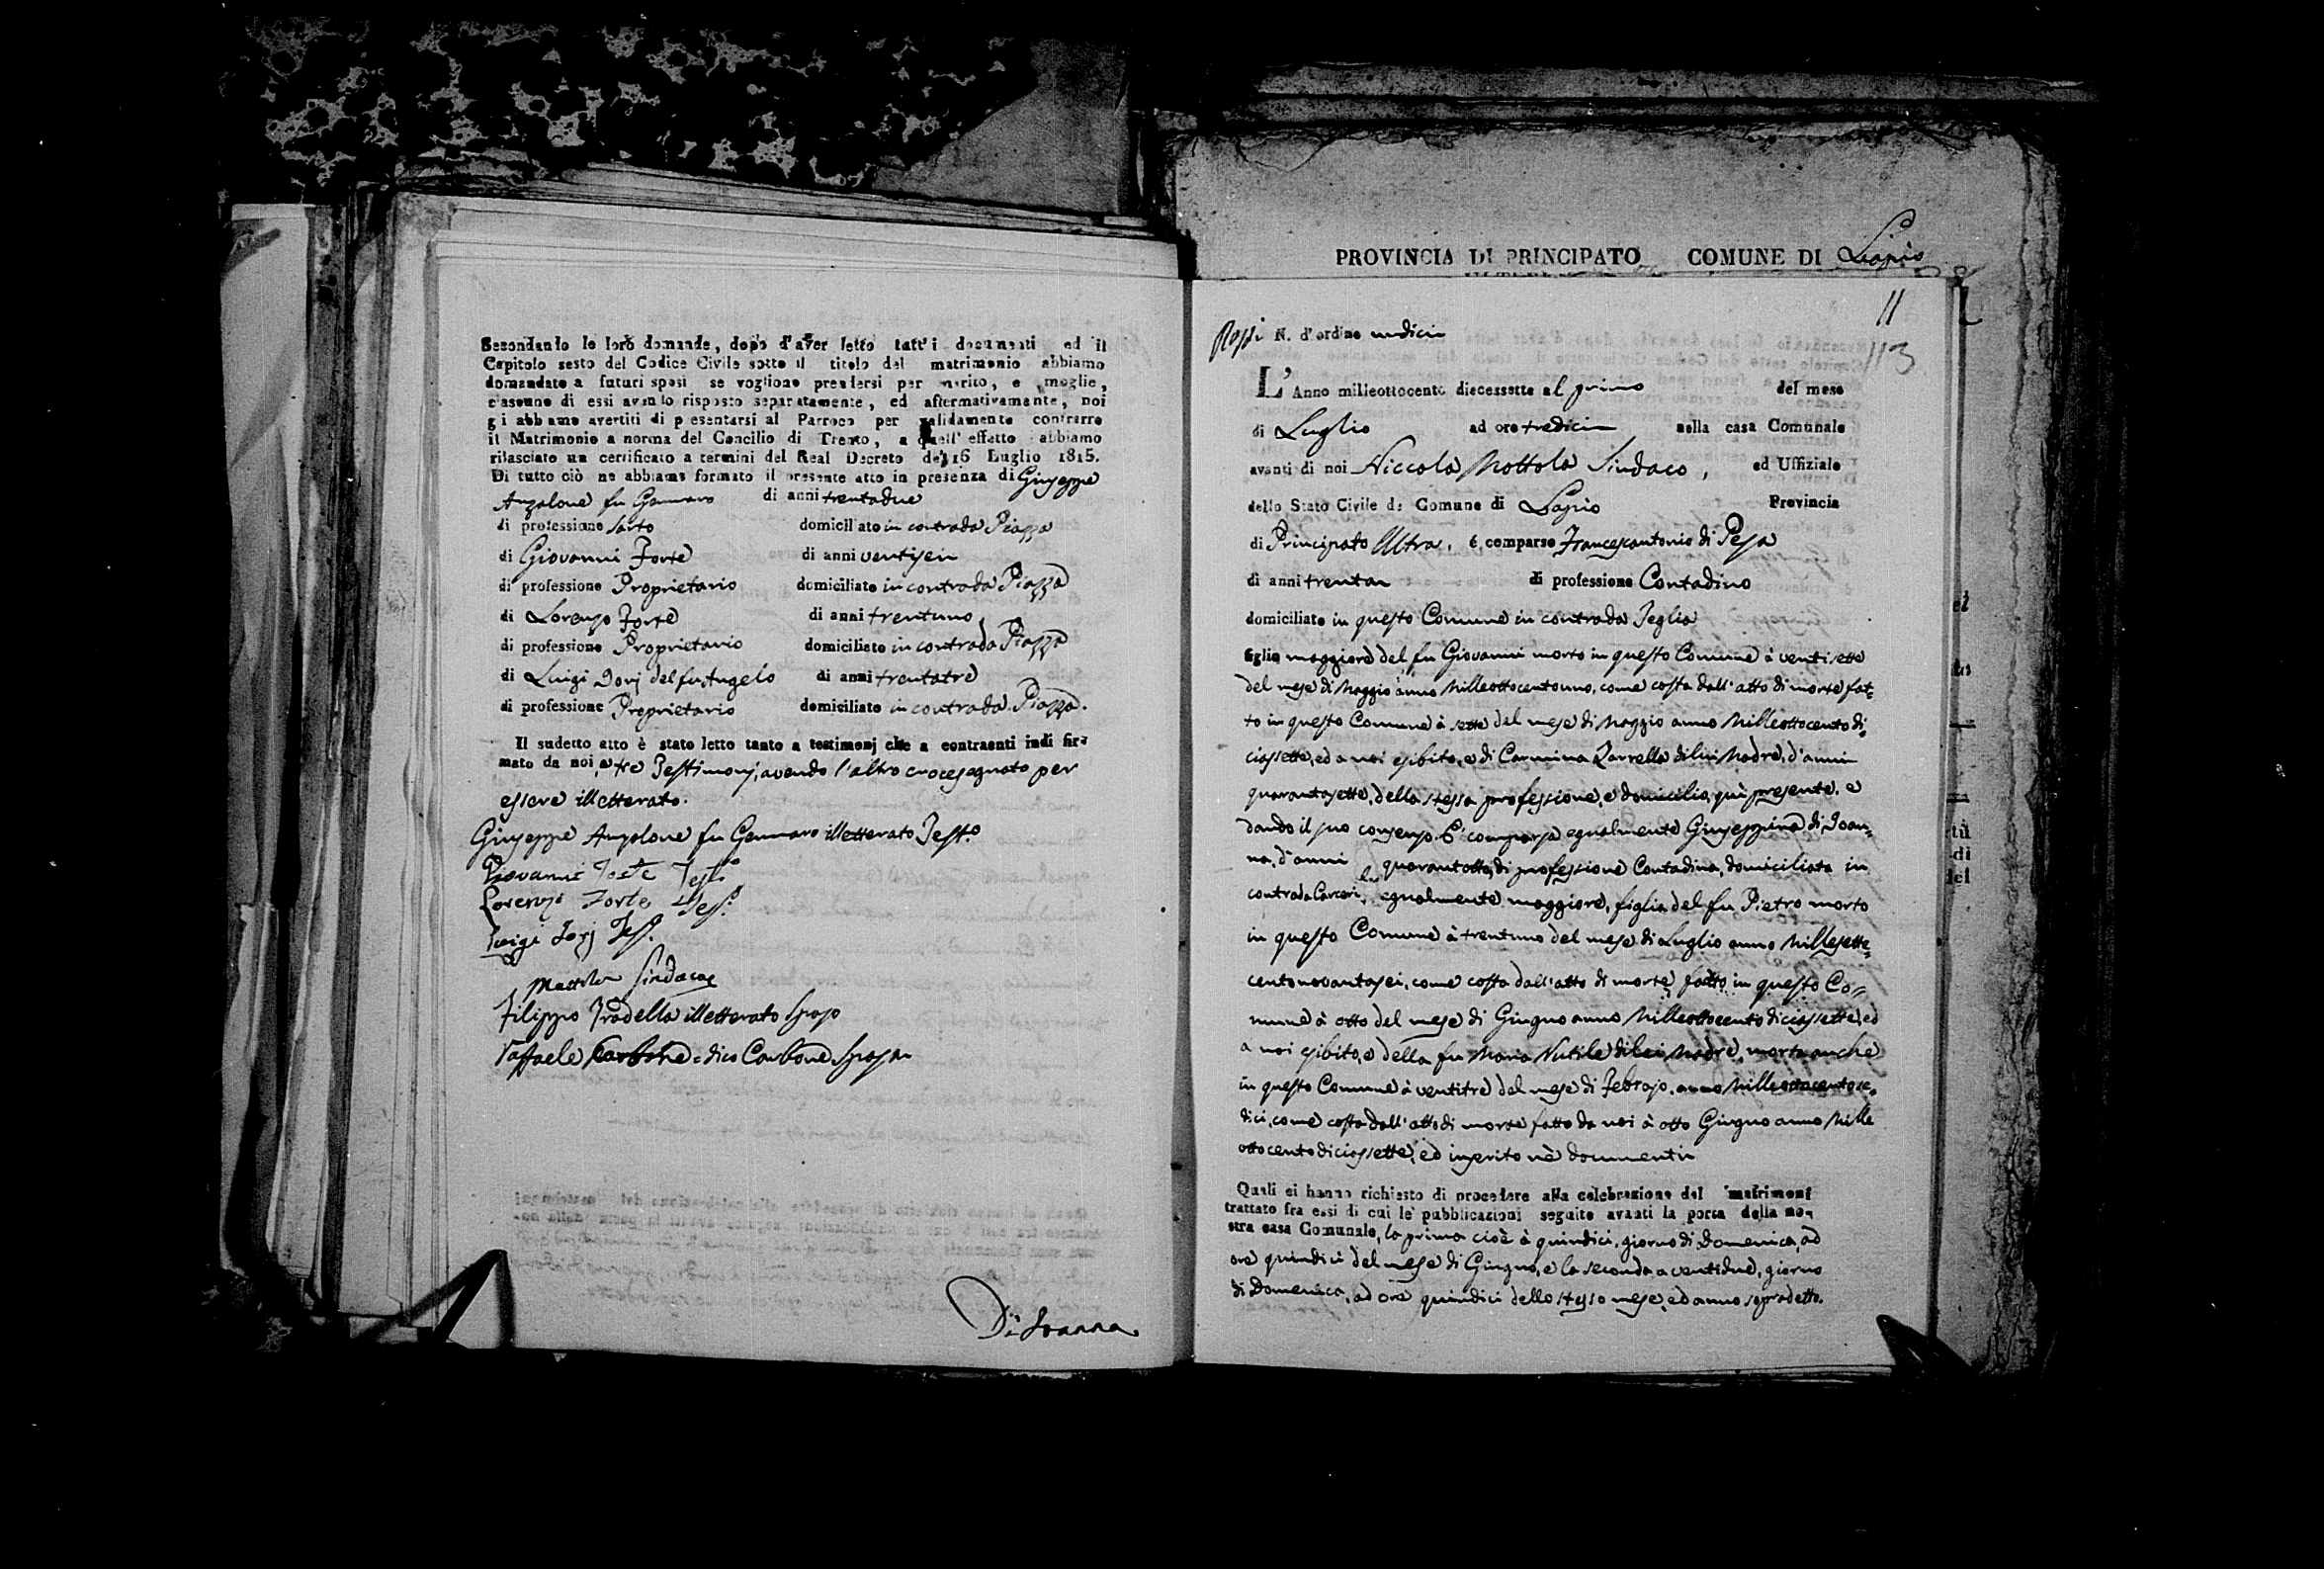 Secondando le loro domande, dopo d'aver letto tutt'i documenti ed il
Capitolo sesto del Codice Civile sotto il titolo del matrimonio abbiamo
domandato a futuri sposi se vogliono prendersi per marito, e moglie,
ciascuno di essi avendo risposto separatamente, ed affermativamente, noi
gi abbiamo avertiti di presentarsi al Parroco per validamente contrarre
il Matrimonio a norma del Concilio di Trento, a quell' effetto abbiamo
rilasciato un certificato a termini del Real Decreto de' 16 Luglio 1815.
Di tutto ciò ne abbiamo formato il presente atto in presenza di Giuseppe
Anzalone fu Gennaro di anni trentadue
di professione Sarto domiciliato in contrada Piazza
di Giovanni Forte di anni ventisei
di professione Proprietario domiciliato in contrada Piazza
di Lorenzo Forte di anni trentuno
di professione Proprietario domiciliato in contrada Piazza
di Luigi del fu Angelo di anni trentatre
di professione Proprietario domiciliato in contrada Piazza.
Il sudetto atto è stato letto tanto a testimonj che a contraenti indi fir-
mato da noi, e tre Testimonj, avendo l'altro crocesegnato per
essere illetterato.
Giuseppe Anzalone fu Gennaro illetterato Test.
Giovanni Forte Test.
Lorenzo Forte Tes.
Luigi Tes.
Mottola Sindaco
Filippo illetterato Sposo
Raffaela Carbone = dico Carbone Sposa
Di Ioanna
PROVINCIA DI PRINCIPATO COMUNE DI Lapio
11
113
N. d'ordine undici
L'Anno milleottocento diecessette al primo del mese
di Luglio ad ore tredici nella casa Comunale
avanti di noi Niccola Mottola Sindaco, ed Uffiziale
dello Stato Civile di Comune di Lapio Provincia
di Principato Ultra, é comparso Francescantonio di Pesa
di anni trenta di professione Contadino
domiciliato in questo Comune in contrada Teglia
figlio maggiore del fu Giovanni morto in questo Comune à ventisette
del mese di Maggio anno Milleottocentouno, come costa dall'atto di morte fat=
to in questo Comune à sette del mese di Maggio anno Milleottocentodi=
ciassette, ed a noi esibito, e di Carmina Zarrella di lui Madre, d'anni
quarantasette, della stessa professione, e domicilio, quì presente, e
dando il suo consenso. E' comparsa egualmente Giuseppina di Ioan=
na, d'anni quarantotto, di professione Contadina, domiciliata in
contrada Carceri, egualmente maggiore, figlia del fu Pietro morto
in questo Comune à trentuno del mese di Luglio anno Millesette=
centonovantasei, come costa dall'atto di morte fatto in questo Co=
mune à otto del mese di Giugno anno Milleottocentodiciassette, ed
a noi esibito, e della fu Maria Nutile di lei Madre, morta anche
in questo Comune à ventitre del mese di Febrajo anno Milleottocentose=
dici, come costa dall'atto di morte fatto da noi à otto Giugno anno Mille
ottocentodiciassette, ed inserito nè documenti
Quali ei hanno richiesto di procedere alla celebrazione del matrimoni
trattato fra essi di cui le pubblicazioni seguite avanti la porta della no-
stra casa Comunale, la prima cioè à quindici, giorno di Domenica, ad
ore quindici del mese di Giugno, e la seconda a ventidue, giorno
di Domenica, ad ore quindici dello stesso mese, ed anno sopradetto.